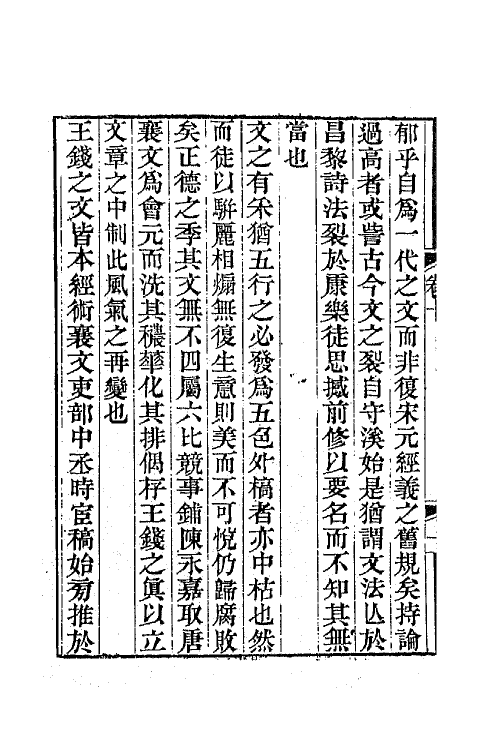 郁乎自爲一代之文而非復宋元經義之舊規矣持論
過高者或訾古今文之裂自守溪始是猶謂文法亾於
昌黎詩法裂於康樂徒思撼前修以要名而不知其無
當也
文之有釆猶五行之必發爲五色外槁者亦中枯也然
而徒以騈麗相煽無復生意則美而不可悅仍歸腐敗
矣正德之季其文無不四屬六比競事鋪陳永嘉取唐
襄文爲會元而洗其穠華化其排偶存王錢之眞以立
文章之中制此風氣之再變也
王錢之文皆本經術襄文吏部中丞時宦稿始旁推於